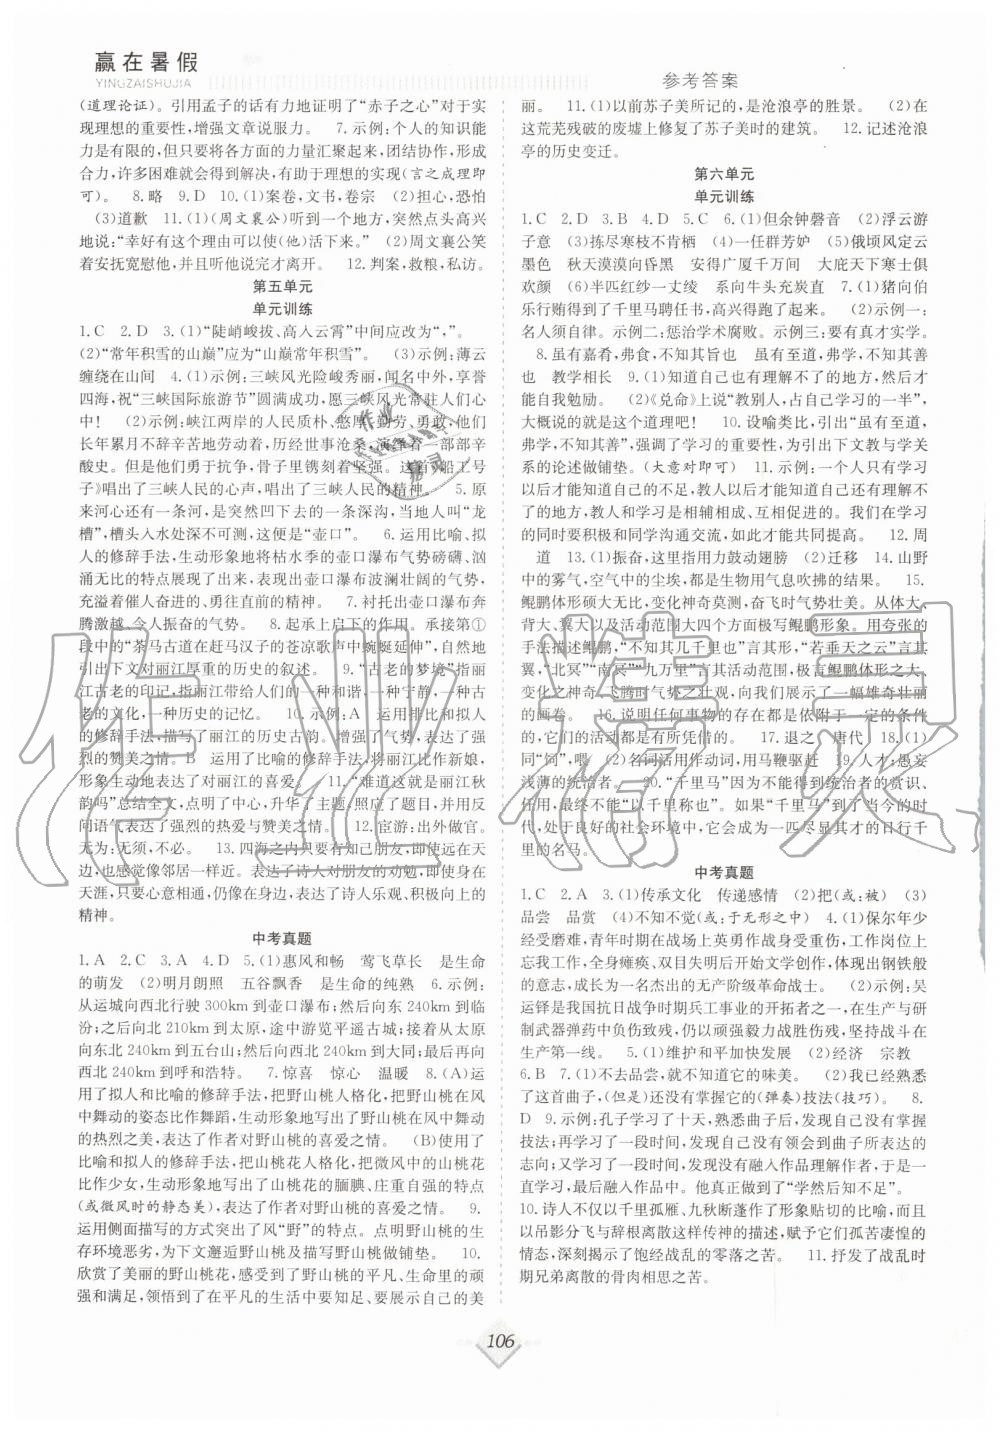 赢在暑假
YINGZAISHUJIA
参考答案
(道理论证)。引用孟子的话有力地证明了“赤子之心”对于实
现理想的重要性,增强文章说服力。 7. 示例:个人的知识能
力是有限的,但将各方面的力量汇聚起来,团结协作,形成
合力,许多困难就会得到解决,有助于理想的实现(言之成理即
可)。 8. 略 9. D 10. (1)案卷,文书,卷宗 (2)担心,恐怕
(3)道歉 11. (1)(周文襄公)听到一个地方,突然点头高兴
地说:“幸好有这个理由可以使(他)活下来。” (2)周文襄公笑
着安抚宽慰他,并且听他说完才离开。 12. 判案,救粮,私访。
第五单元
单元训练
1. C 2. D 3. (1)“陡峭峻拔、高入云霄”中间应改为“,”。
(2)“常年积雪的山巅”应为“山巅常年积雪”。 (3)示例:薄云
缠绕在山间 4. (1)示例:三峡风光险峻秀丽,闻名中外,享誉
四海,祝“三峡国际旅游节”圆满成功,愿三峡风光常驻人们心
中! (2)示例:峡江两岸的人民质朴、悠厚、勤劳、勇敢,他们
长年累月不辞辛苦地劳动着,历经世事沧桑,演绎着一部部辛
酸史。但他们敢于抗争,骨子里镌刻着坚强。这首《船工号
子》唱出了三峡人民的心声,唱出了三峡人民的精神。 5. 原
来河心还有一条河,是突然凹下去的一条深沟,当地人叫“龙
槽”,槽头入水处深不可测,便是“壶口”。 6. 运用比喻、拟
人的修辞手法,生动形象地将枯水季的壶口瀑布气势磅礴、汹
涌无比的特点展现了出来,表现壶口瀑布波澜壮阔的气势,
充溢着催人奋进的、勇往直前的精神。 7. 衬托出壶口瀑布奔
腾激越、令人振奋的气势。 8. 起承上启下的作用。承接第①
段中的“茶马古道在赶马汉子的苍凉歌声中蜿蜒延伸”,自然地
引出下文对丽江厚重的历史的叙述。 9. “古老的梦境”指丽
江古老的印记,指丽江带给人们的一种和谐,一种宁静,一种古
老的文化,一种历史的记忆。 10. 示例:A 运用排比和拟人
的修辞手法,写出了丽江的历史古韵。增强了气势,表达了强
烈的赞美之情。B 运用了比喻的修辞手法,将丽江比作新娘,
形象生动地表达了对丽江的喜爱。 11. “难道这就是丽江秋
韵吗”总结全文,点明了中心,升华了主题,照应了题目,并用反
问语气表达了强烈的热爱与赞美之情。 12. 宦游:出外做官。
无为:无须,不必。 13. 四海之内只要有知己朋友,即使远在
天边,感觉就像邻居一样近。表达了诗人对朋友的劝勉,即使身在
天涯,只要心意相通,仍像在身边,表达了诗人乐观、积极向上的
精神。
中考真题
1. A 2. C 3. A 4. D 5. (1)惠风和畅 莺飞草长 是生命
的萌发 (2)明月朗照 五谷飘香 是生命的纯熟 6. 示例:
从运城向西北行驶300km到壶口瀑布;然后向东240km到临
汾;之后向北210km到太原,途中游览平遥古城;接着从太原
向东北240km到五台山;然后向西北240km到大同;最后向
西240km到呼和浩特。 7. 惊喜 惊心 温暖 8. (A)运
用了拟人和比喻的修辞手法,把野山桃人格化,把野山桃在风
中舞动的姿态比作舞蹈,生动形象地写出了野山桃在风中舞动
的热烈之美,表达了作者对野山桃的喜爱之情。 (B)使用了
比喻和拟人的修辞手法,把山桃花人格化,把微风中的山桃花
比作少女,生动形象地写出了山桃花的腼腆、庄重自强的特点
(或微风时的静态美),表达了作者对野山桃的喜爱之情。 9.
运用侧面描写的方式突出了风“野”的特点。点明野山桃的生
存环境恶劣,为下文邂逅野山桃及情感抒发做铺垫。 10.
欣赏了美丽的野山桃花,感受到了野山桃的平凡、生命里的顽
强和满足,领悟到了在平凡的生活中要知足、要展示自己的美
丽。 11. (1)以前苏子美所记的,是沧浪亭的胜景。 (2)在
这荒芜残破的废墟上修复了苏子美时的建筑。 12. 记述沧浪
亭的历史变迁。
第六单元
单元训练
1. C 2. D 3. B 4. D 5. C 6. (1)但余钟磬音 (2)浮云游
子意 (3)拣尽寒枝不肯栖 (4)一任群芳妒 (5)俄顷风定云
墨色 秋天漠漠向昏黑 安得广厦千万间 大庇天下寒士俱
欢颜 (6)半匹红纱一丈绫 系向牛头充炭直 7. (1)猪向伯
乐行贿得到了千里马聘任书,高兴得笑了起来。 (2)示例一:
名人须自律。示例二:惩治学术腐败。示例三:要有真才实学。
8. 虽有嘉肴,弗食,不知其旨也 虽有至道,弗学,不知其善
也 教学相长 9. (1)知道自己也有理解不了的地方,然后才
能自我勉励。 (2)《兑命》上说“教别人,占自己学习的一半”,
大概说的就是这个道理吧! 10. 设喻类比,引出“虽有至道,
弗学,不知其善”,强调了学习的重要性,为引出下文教与学关
系的论述做铺垫。(大意对即可) 11. 示例:一个人只有学习
以后才能知道自己的不足,教人以后才能知道自己还有理解不
了的地方,教与学是相辅相成、互相促进的。我们在学习
的同时要和同学沟通交流,如此才能共同提高。 12. 周
道 13. (1)振奋,这里指用力鼓动翅膀 (2)迁移 14. 山野
中的雾气,空气中的尘埃,都是生物用气息吹拂的结果。 15.
鲲鹏体形硕大无比,变化神奇莫测,奋飞时气势壮美。从大体、
背大、翼大以及活动范围大四个方面极写鲲鹏形象。用夸张的
手法描述鲲鹏,“不知其几千里也”写其体形,“若垂天之云”写其
翼,“北冥”“南冥”“九万里”写其活动范围,鲲鹏体形之大、
变化之神奇、飞腾时气势之壮观,向我们展示了一幅雄奇壮丽
的画卷。 16. 说明任何事物的存在都是依附于一定的条件
的,它们的活动都是有所凭借的。 17. 退之 唐代 18. (1)
同“饲”,喂 (2)名词活用作动词,用马鞭驱赶 19. 人才;愚妄
浅薄的统治者。 20. “千里马”因为不能得到统治者的赏识、
任用,最终“不以千里称也”。如果“千里马”到了当今的时
代,处于良好的社会环境中,它会成为一匹尽显其才的日行千
里的名马。
中考真题
1. C 2. A 3. (1)传承文化 传递感情 (2)把(或:被) (3)
品尝 品赏 (4)不知不觉(或:于无形之中) 4. (1)保尔年少
经受磨难,青年时期在战场上英勇作战身受重伤,工作岗位上
下呕心沥血,全身瘫痪、双目失明后开始文学创作,体现出钢铁般
的意志,成长为一名杰出的无产阶级革命战士。 (2)示例:吴
运铎是我国抗日战争时期兵工事业的开拓者之一,在生产与研
制武器弹药中负伤致残,仍以顽强毅力战胜伤残,坚持战斗在
生产第一线。 5. (1)维护和平加快发展 (2)经济 宗教
6. B 7. (1)不去品尝,就不知道它的味美。 (2)我已经熟悉
了这首曲子,(但是)还没有掌握它的(弹奏)技法(技巧)。 8.
D 9. 示例:孔子学习了十天,熟悉曲子后,发现自己没有掌握
技法;再学习了一段时间,发现自己没有领会到曲子所表达的
志向;又学习了一段时间,发现没有融入作品理解作者,于是一
直学习,最后融入作品中。也证明了“学然后知不足”。
10. 诗人不仅以千里孤雁、九秋断蓬作了形象贴切的比喻,而且
以吊影分飞与辞根离散这样传神的描述,赋予它们孤苦凄惶的
情态,深刻揭示了饱经战乱的零落之苦。 11. 抒发了战乱时
期兄弟离散的骨肉相思之苦。
106